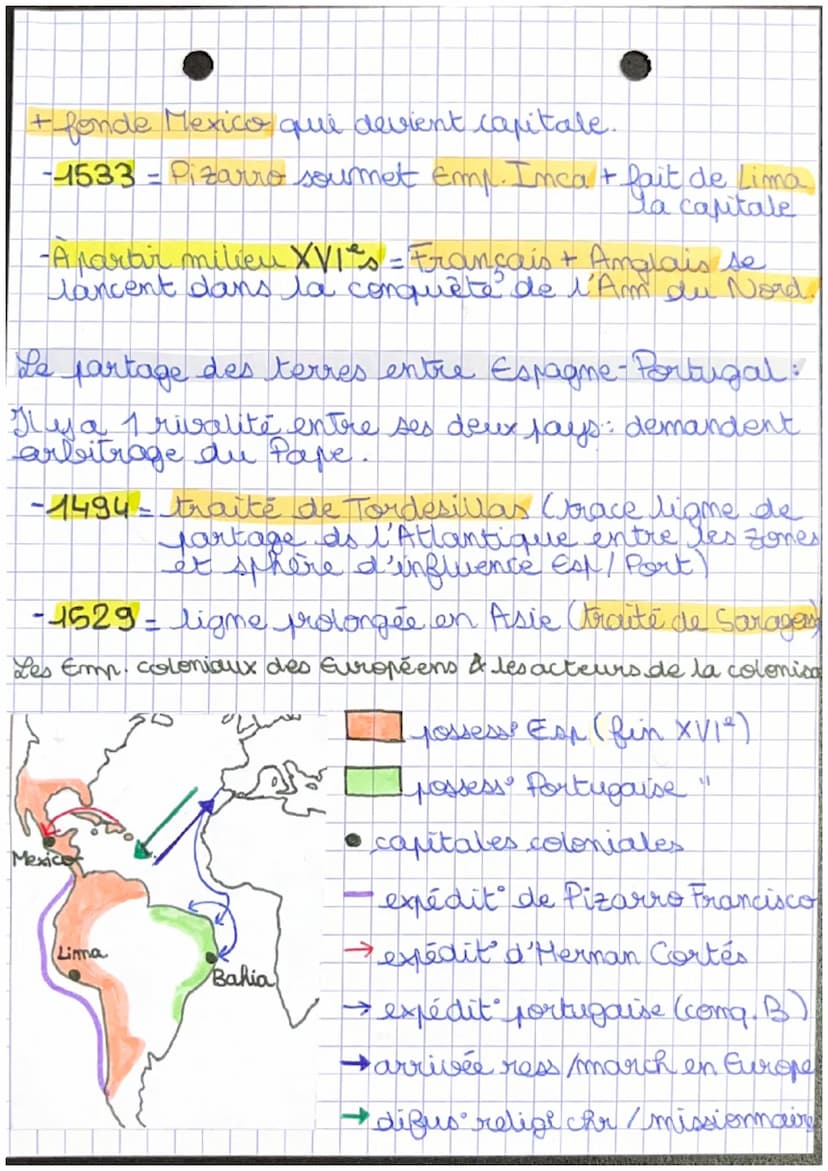 + fonde Mexico qui devient capitale.
-1533 = Pizarro soumet Emp. Inca + fait de Lima
la capitale
-À partir milieu XVIᵉs = Français + Anglais se
lancent dans la conquête de l'Am du Nord.
Le partage des terres entre Espagne-Portugal :
Il y a 1 rivalité entre ses deux pays : demandent
arbitrage du Pape.
-1494 = traité de Tordesillas (trace ligne de
partage ds l'Atlantique entre les zones
et sphère d'influence Esp/Port)
-1529 = ligne prolongée en Asie (traité de Saragoss)
Les Emp. coloniaux des Européens & les acteurs de la colonisa
possess° Esp (fin XVIᵉ)
possess° Portugaise "
capitales coloniales
expédit° de Pizarro Francisco
expédit° d'Hernan Cortés
expédit° portugaise (conq. B)
arrivée ress/march en Europe
difus° relig° chr / missionnaire
Mexico
Lima
Bahia